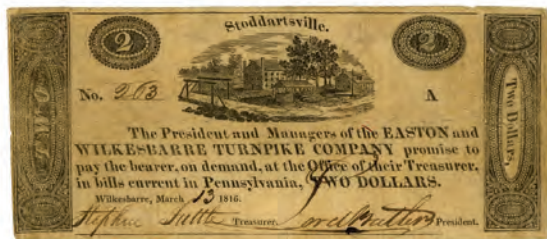 Stoddartsville.
2 2
No. 263 A
TWO
Two Dollars,
The President and Managers of the EASTON and
WILKESBARRE TURNPIKE COMPANY promise to
pay the bearer, on demand, at the Office of their Treasurer,
in bills current in Pennsylvania, TWO DOLLARS.
Wilkesbarre, March 13 1816.
Stephen Tuttle Treasurer. Lord Butler President.